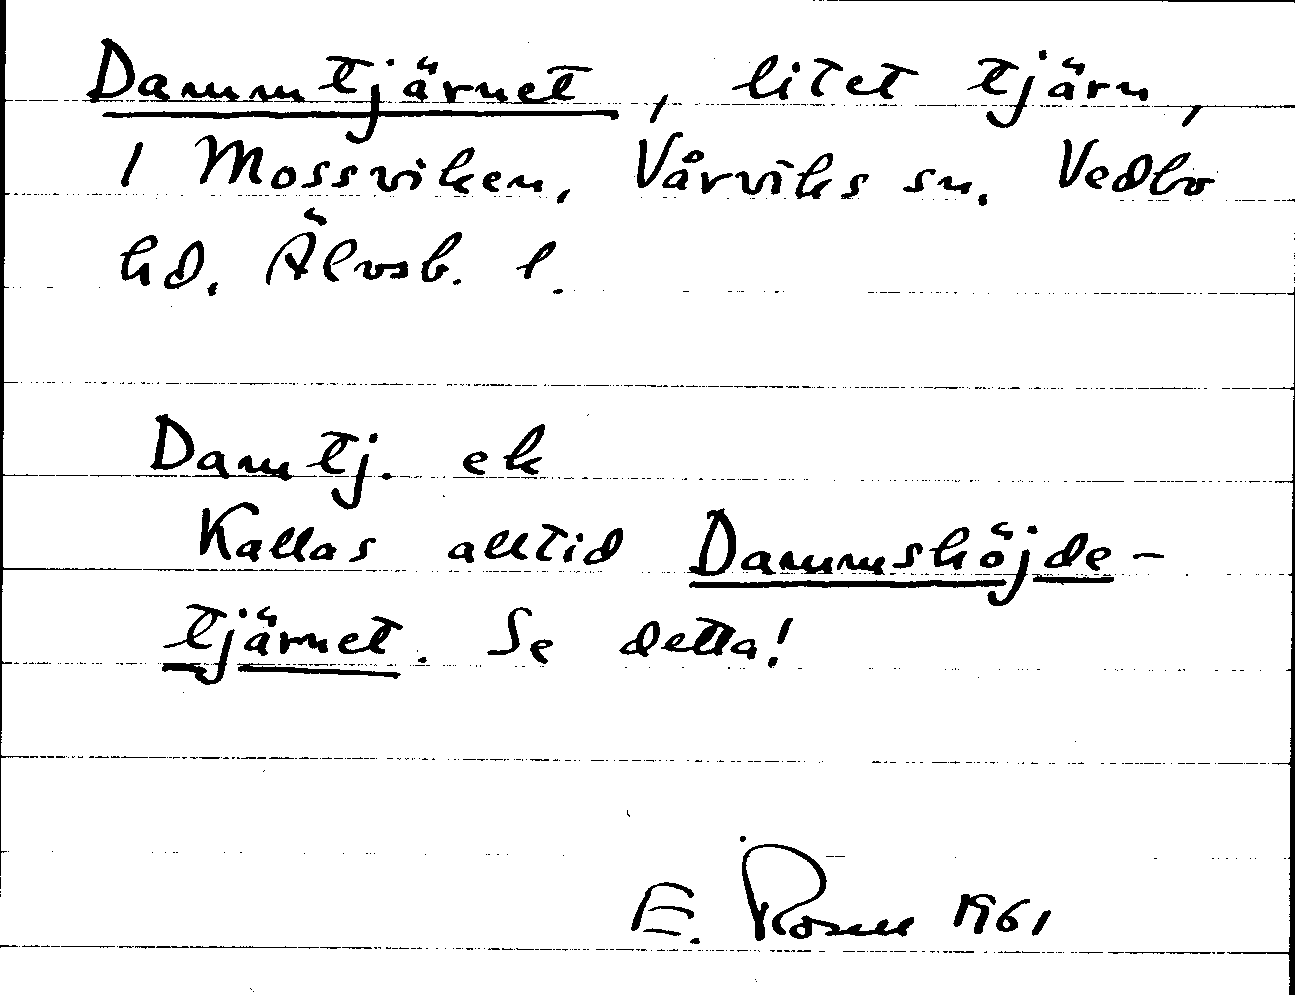 Dammtjärnet, litet tjärn,
1 Mossviken, Vårviks sn. Vedbo
hd. Älvsb. l.
Damtj. ek
Kallas alltid Dammshöjde-
tjärnet. Se detta!
E. Rosell 1961